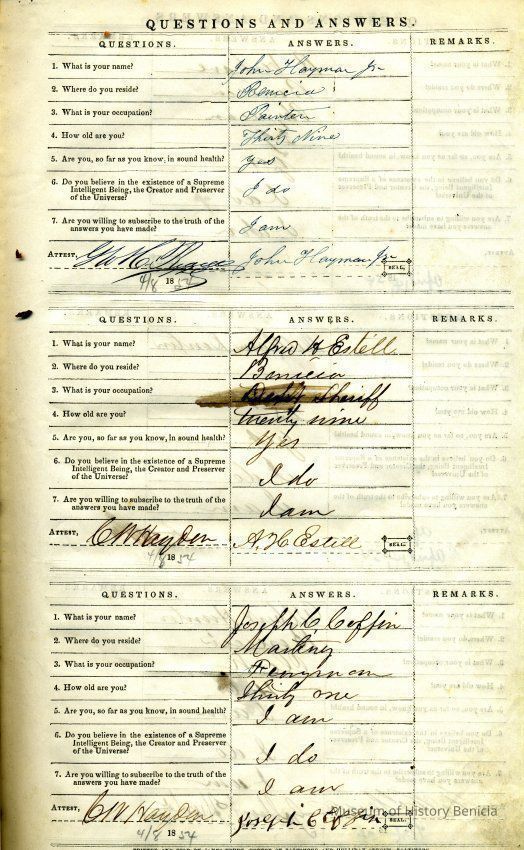 QUESTIONS AND ANSWERS.
QUESTIONS. ANSWERS. REMARKS.
1. What is your name? John Hayman Jr
2. Where do you reside? Benicia
3. What is your occupation? Painter
4. How old are you? Thirty Nine
5. Are you, so far as you know, in sound health? Yes
6. Do you believe in the existence of a Supreme
Intelligent Being, the Creator and Preserver
of the Universe? I do
7. Are you willing to subscribe to the truth of the
answers you have made? I am
ATTEST, John Hayman Jr SEAL.
4/8 1854
QUESTIONS. ANSWERS. REMARKS.
1. What is your name? Alfred H Estell
2. Where do you reside? Benicia
3. What is your occupation? Sheriff
4. How old are you? twenty nine
5. Are you, so far as you know, in sound health? Yes
6. Do you believe in the existence of a Supreme
Intelligent Being, the Creator and Preserver
of the Universe? I do
7. Are you willing to subscribe to the truth of the
answers you have made? I am
ATTEST, C W Hayden A. H Estill SEAL.
4/8 1854
QUESTIONS. ANSWERS. REMARKS.
1. What is your name? Joseph C Coffin
2. Where do you reside? Martinez
3. What is your occupation? Ferryman
4. How old are you? Thirty one
5. Are you, so far as you know, in sound health? I am
6. Do you believe in the existence of a Supreme
Intelligent Being, the Creator and Preserver
of the Universe? I do
7. Are you willing to subscribe to the truth of the
answers you have made? I am
ATTEST, C W Hayden Joseph C Coffin SEAL.
4/8 1854
Museum of History Benicia